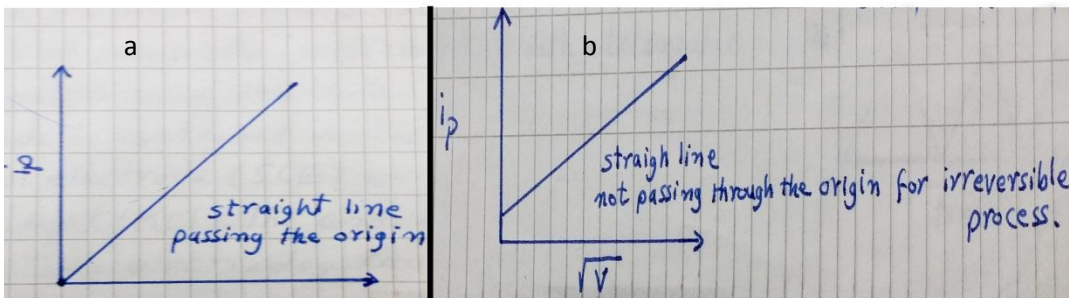 a
straight line
passing the origin
b
i_p
straigh line
not passing through the origin for irreversible
process.
√V